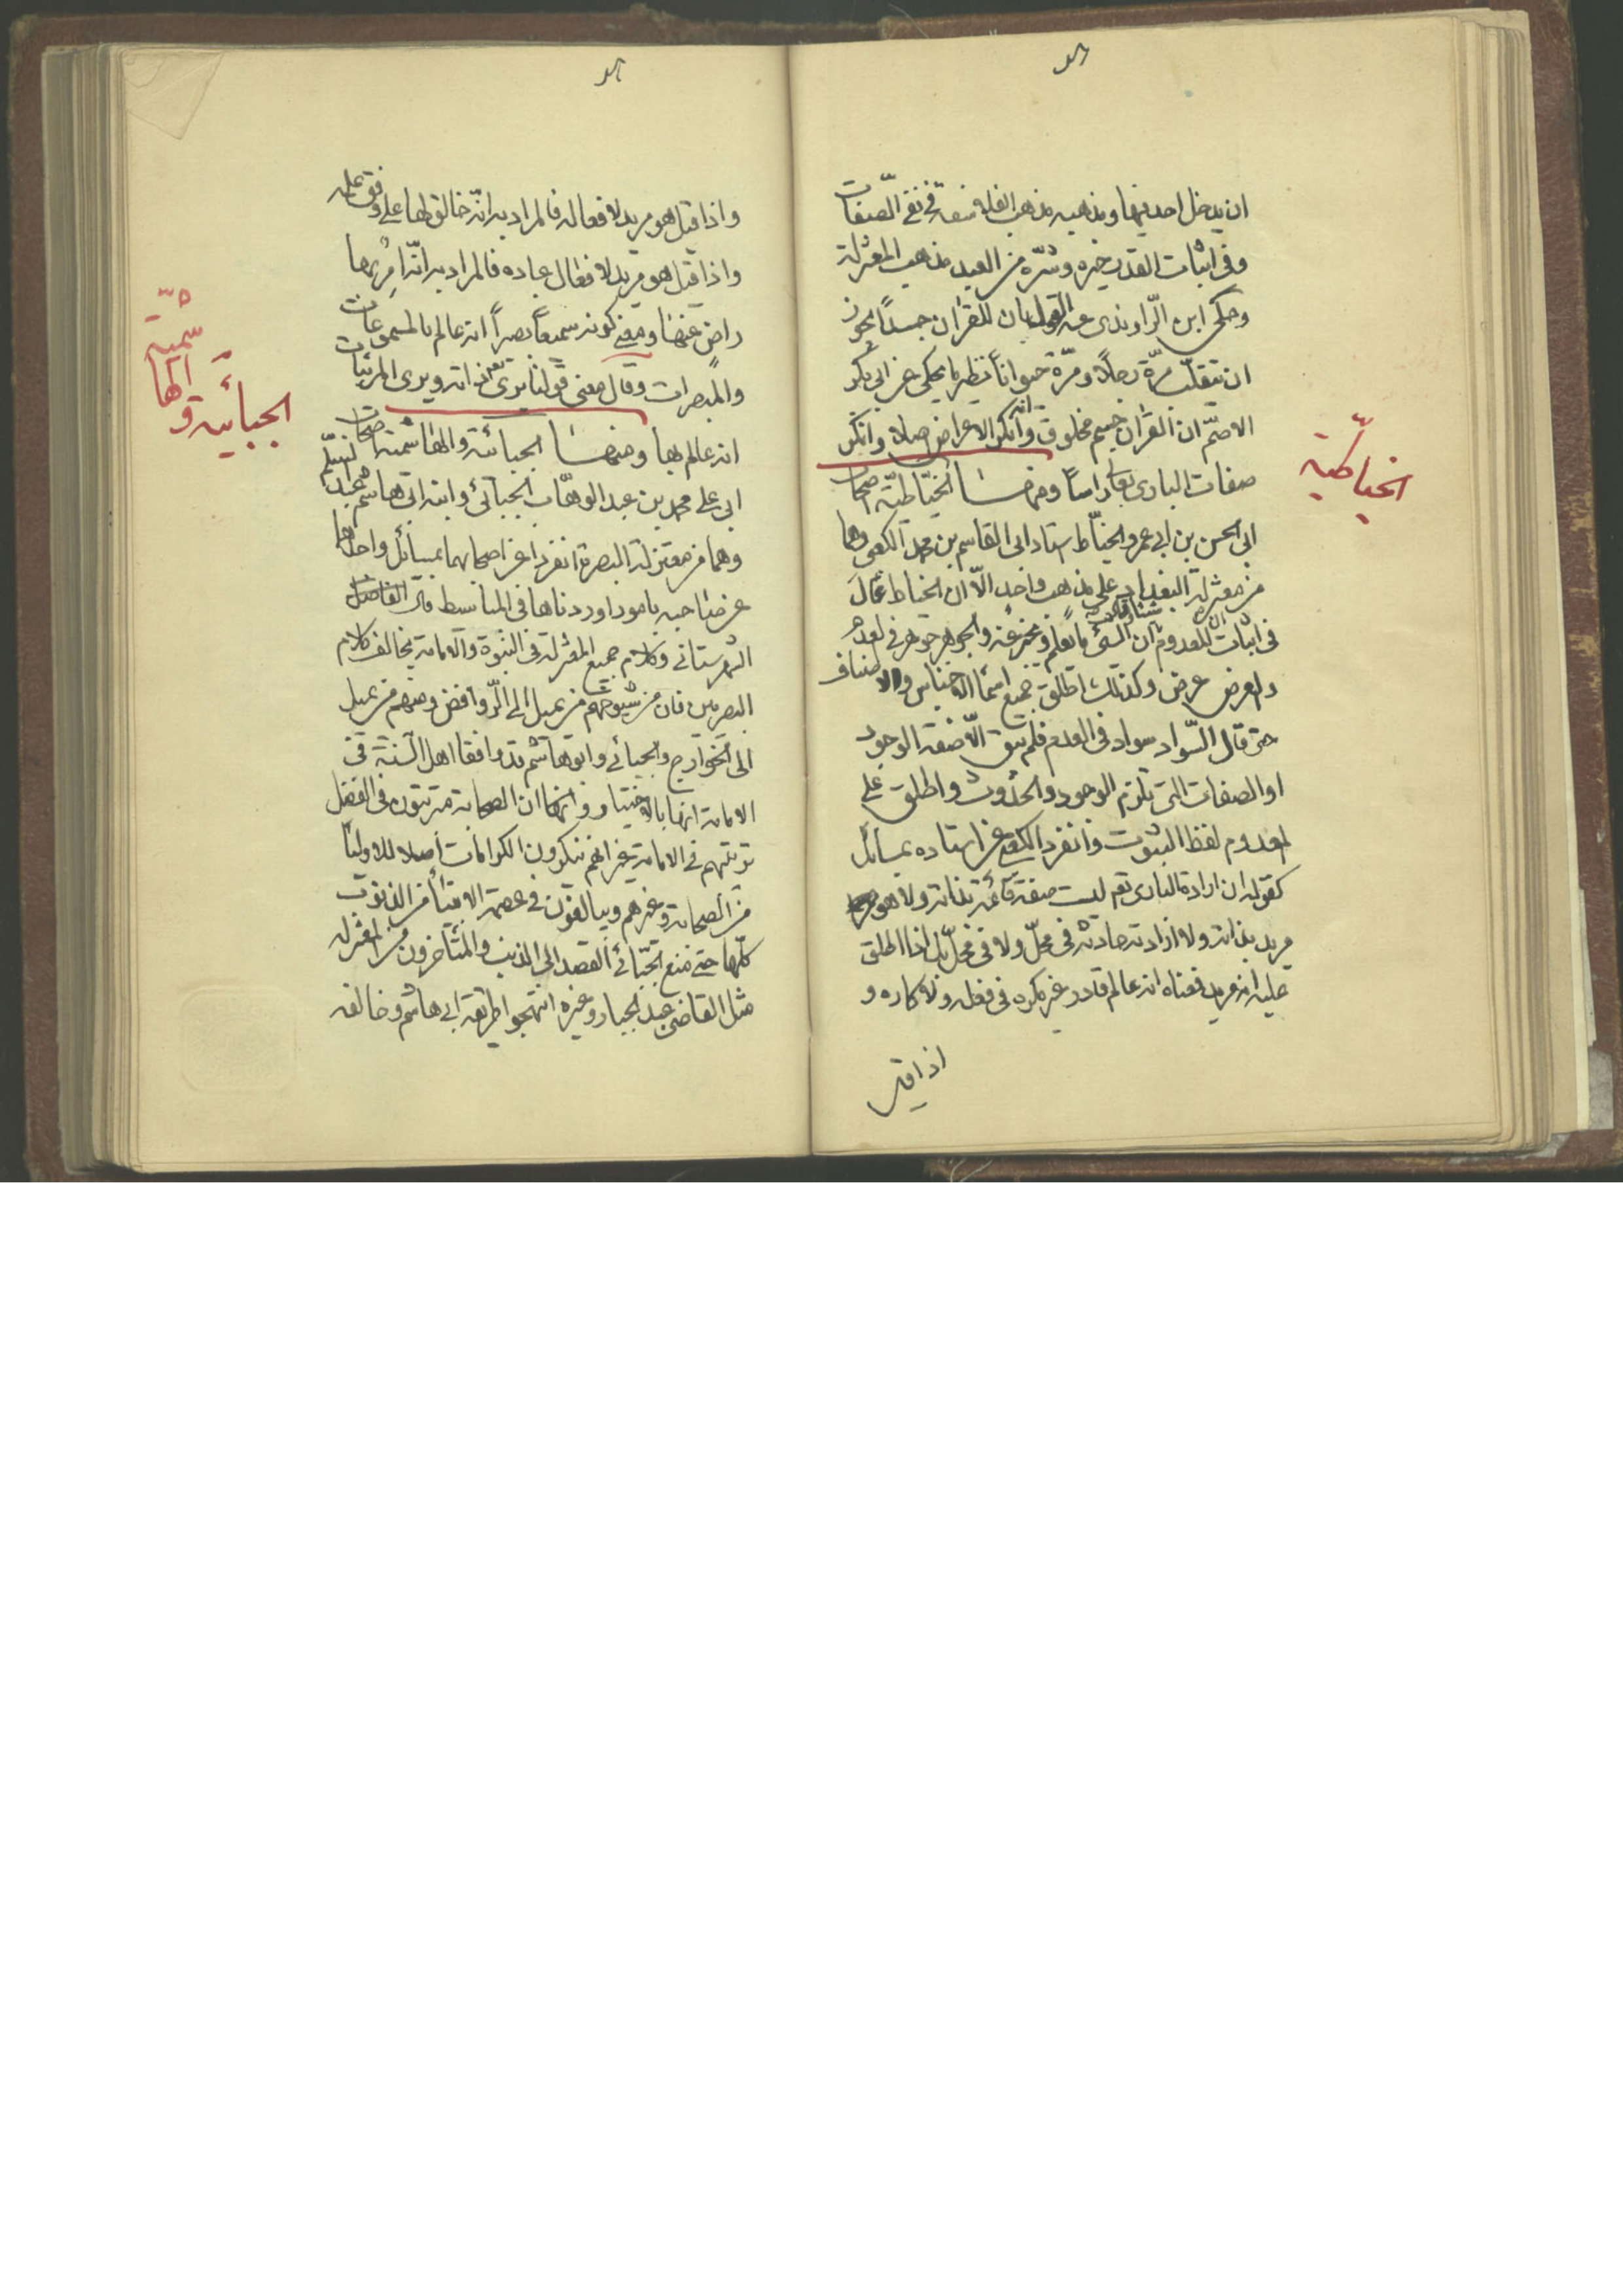 ان يدخل احد فيها ومذهبه مذهب الفلاسفة في نفي الصفات
وفي اثبات القدر خيره وشره من العبد مذهب المعتزلة
وحكى ابن الراوندي عنه القول بان للقران جسدا يجوز
ان يتقلب مرة رجلا ومرة حيوانا نظير ما يحكى عن ابي بكر
الاصم ان القران جسم مخلوق وانه انكر الاعراض اصلا وانكر
صفات البارى تعالى راسا ومنها الخياطية اصحاب
ابي الحسن بن ابي عمرو الخياط استاد ابي القاسم بن محمد الكعبي وهما
من معتزلة البغداد على مذهب واحد الا ان الخياط غالى
في اثبات المعدوم شيئا وقال ان الشئ ما يعلم ويخبر عنه والجوهر جوهر في العدم
والعرض عرض وكذلك اطلق جميع اسماء الاجناس والاصناف
حتى قال السواد سواد في العدم فلم يبق الا صفة الوجود
او الصفات التي تلزم الوجود والحدوث واطلق على
المعدوم لفظ الثبوت وانفرد الكعبي عن استاده بمسائل
كقوله ان ارادة البارى تعم ليست صفة قائمة بذاته ولا هو
مريد بذاته ولا ارادته حادثة في محل ولا في محل بل اذا اطلق
عليه انه مريد فمعناه انه عالم قادر غير مكره في فعله ولا كاره و
اذا قيل
الخياطية
واذا قيل هو مريد لافعاله فالمراد به انه خالق لها على وفق علمه
واذا قيل هو مريد لافعال عباده فالمراد به انه امر بها
راض عنها ومعنى كونه سميعا بصيرا انه عالم بالمسموعات
والمبصرات وقال معنى قولنا يرى ذاته ويرى المرئيات
انه عالم بها ومنها الجبائية والهاشمية اصحاب
ابي علي محمد بن عبد الوهاب الجبائي وابنه ابي هاشم عبد السلم
وهما من معتزلة البصرة انفردا عن اصحابهما بمسائل واحدهما
عن صاحبه بامور اوردناها في المباسط قال الفاضل
الشهرستاني وكلام جميع المعتزلة في النبوة والامامة يخالف كلام
البصريين فان من شيوخهم من يميل الى الروافض ومنهم من يميل
الى الخوارج والجبائي وابو هاشم قد وافقا اهل السنة في
الامامة انها بالاختيار وانما ان الصحابة مترتبون في الفضل
ترتبهم في الامامة غير انهم ينكرون الكرامات اصلا للاولياء
من الصحابة وغيرهم ويبالغون في عصمة الانبياء من الذنوب
كلها حتى منع الجبائي القصد الى الذنب والمتاخرون من المعتزله
مثل القاضي عبد الجبار وغيره انتهجوا طريقة ابي هاشم وخالفه
الجبائية و
الها
شمية